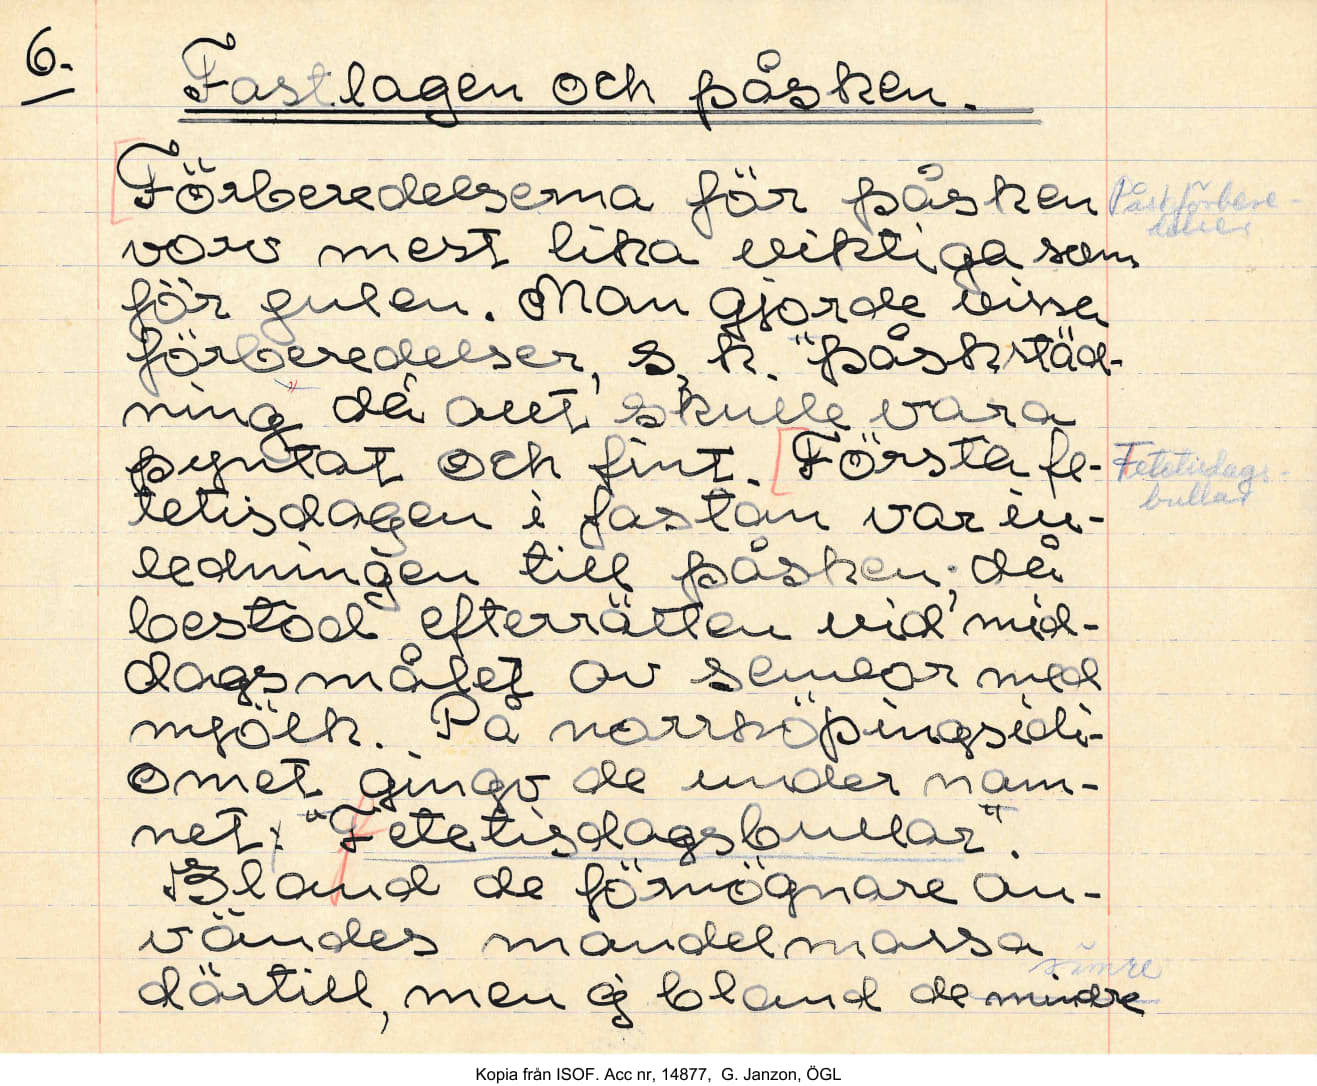 6.
Fastlagen och påsken.
Förberedelserna för påsken
voro mest lika viktiga som
för julen. Man gjorde vissa
förberedelser, s. k. "påskstäd-
ning" då allt skulle vara
pyntat och fint. Första fe-
tetisdagen i fastan var in-
ledningen till påsken; då
bestod efterrätten vid mid-
dagsmålet av semlor med
mjölk. På norrköpingsidi-
omet gingo de under nam-
net: "Fetetisdagsbullar".
Bland de förmögnare an-
vändes mandelmassa
därtill, men ej bland de mindre
sämre
Påskförbere-
delser
Fetetisdags-
bullar
Kopia från ISOF. Acc nr, 14877, G. Janzon, ÖGL